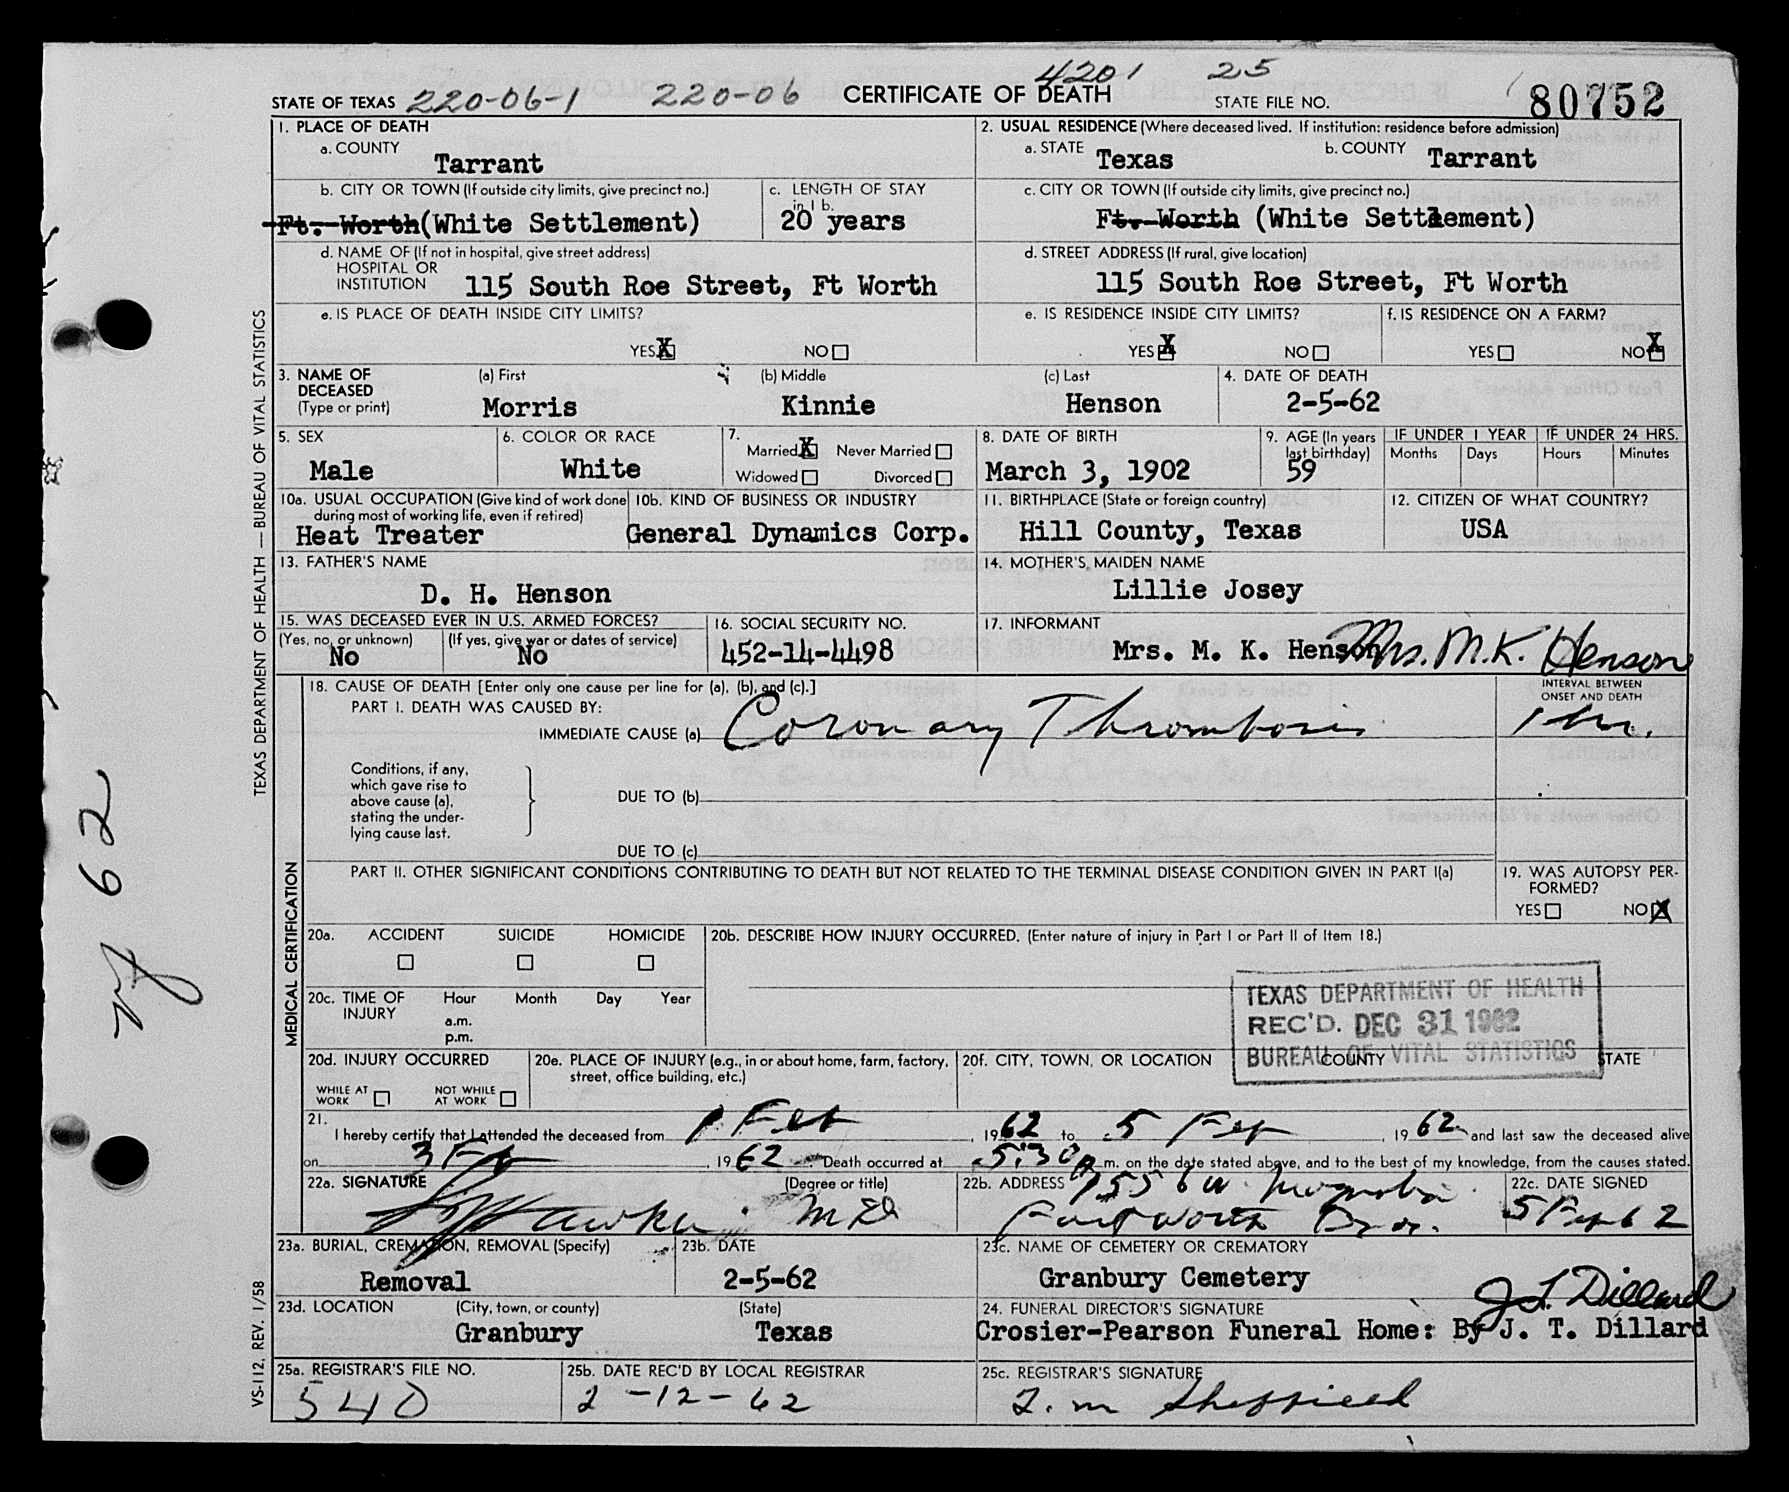 4201 25
STATE OF TEXAS 220-06-1 220-06 CERTIFICATE OF DEATH STATE FILE NO. 80752
1. PLACE OF DEATH
a. COUNTY
Tarrant
2. USUAL RESIDENCE (Where deceased lived. If institution: residence before admission)
a. STATE Texas b. COUNTY Tarrant
b. CITY OR TOWN (If outside city limits, give precinct no.)
Ft. Worth (White Settlement)
c. LENGTH OF STAY
in 1 b.
20 years
c. CITY OR TOWN (If outside city limits, give precinct no.)
Ft. Worth (White Settlement)
d. NAME OF (If not in hospital, give street address)
HOSPITAL OR
INSTITUTION 115 South Roe Street, Ft Worth
d. STREET ADDRESS (If rural, give location)
115 South Roe Street, Ft Worth
e. IS PLACE OF DEATH INSIDE CITY LIMITS?
YES X NO
e. IS RESIDENCE INSIDE CITY LIMITS?
YES X NO
f. IS RESIDENCE ON A FARM?
YES NO X
3. NAME OF
DECEASED
(Type or print)
(a) First
Morris
(b) Middle
Kinnie
(c) Last
Henson
4. DATE OF DEATH
2-5-62
5. SEX
Male
6. COLOR OR RACE
White
7.
Married X Never Married
Widowed Divorced
8. DATE OF BIRTH
March 3, 1902
9. AGE (In years
last birthday)
59
IF UNDER 1 YEAR
Months Days
IF UNDER 24 HRS.
Hours Minutes
10a. USUAL OCCUPATION (Give kind of work done
during most of working life, even if retired)
Heat Treater
10b. KIND OF BUSINESS OR INDUSTRY
General Dynamics Corp.
11. BIRTHPLACE (State or foreign country)
Hill County, Texas
12. CITIZEN OF WHAT COUNTRY?
USA
13. FATHER'S NAME
D. H. Henson
14. MOTHER'S MAIDEN NAME
Lillie Josey
15. WAS DECEASED EVER IN U.S. ARMED FORCES?
(Yes, no, or unknown) (If yes, give war or dates of service)
No No
16. SOCIAL SECURITY NO.
452-14-4498
17. INFORMANT
Mrs. M. K. Henson Mrs. M.K. Henson
18. CAUSE OF DEATH [Enter only one cause per line for (a), (b), and (c).]
PART I. DEATH WAS CAUSED BY:
IMMEDIATE CAUSE (a) Coronary Thrombosis
INTERVAL BETWEEN
ONSET AND DEATH
1 hr.
Conditions, if any,
which gave rise to
above cause (a),
stating the under-
lying cause last.
DUE TO (b)
DUE TO (c)
PART II. OTHER SIGNIFICANT CONDITIONS CONTRIBUTING TO DEATH BUT NOT RELATED TO THE TERMINAL DISEASE CONDITION GIVEN IN PART I(a)
19. WAS AUTOPSY PER-
FORMED?
YES NO X
20a. ACCIDENT SUICIDE HOMICIDE
20b. DESCRIBE HOW INJURY OCCURRED. (Enter nature of injury in Part I or Part II of Item 18.)
20c. TIME OF
INJURY
Hour Month Day Year
a.m.
p.m.
TEXAS DEPARTMENT OF HEALTH
REC'D. DEC 31 1962
BUREAU OF VITAL STATISTICS
20d. INJURY OCCURRED
WHILE AT
WORK
NOT WHILE
AT WORK
20e. PLACE OF INJURY (e.g., in or about home, farm, factory,
street, office building, etc.)
20f. CITY, TOWN, OR LOCATION COUNTY STATE
21.
I hereby certify that I attended the deceased from 1 Feb, 1962 to 5 Feb, 1962 and last saw the deceased alive
on 3 Feb, 1962. Death occurred at 5:30 p m. on the date stated above, and to the best of my knowledge, from the causes stated.
22a. SIGNATURE (Degree or title)
MD
22b. ADDRESS 1556 W. Magnolia
Fort Worth
22c. DATE SIGNED
5 Feb 62
23a. BURIAL, CREMATION, REMOVAL (Specify)
Removal
23b. DATE
2-5-62
23c. NAME OF CEMETERY OR CREMATORY
Granbury Cemetery
23d. LOCATION (City, town, or county) (State)
Granbury Texas
24. FUNERAL DIRECTOR'S SIGNATURE
J T. Dillard
Crosier-Pearson Funeral Home: By J. T. Dillard
25a. REGISTRAR'S FILE NO.
540
25b. DATE REC'D BY LOCAL REGISTRAR
2-12-62
25c. REGISTRAR'S SIGNATURE
T. m Sheffield
TEXAS DEPARTMENT OF HEALTH — BUREAU OF VITAL STATISTICS
MEDICAL CERTIFICATION
VS-112, REV. 1/58
62